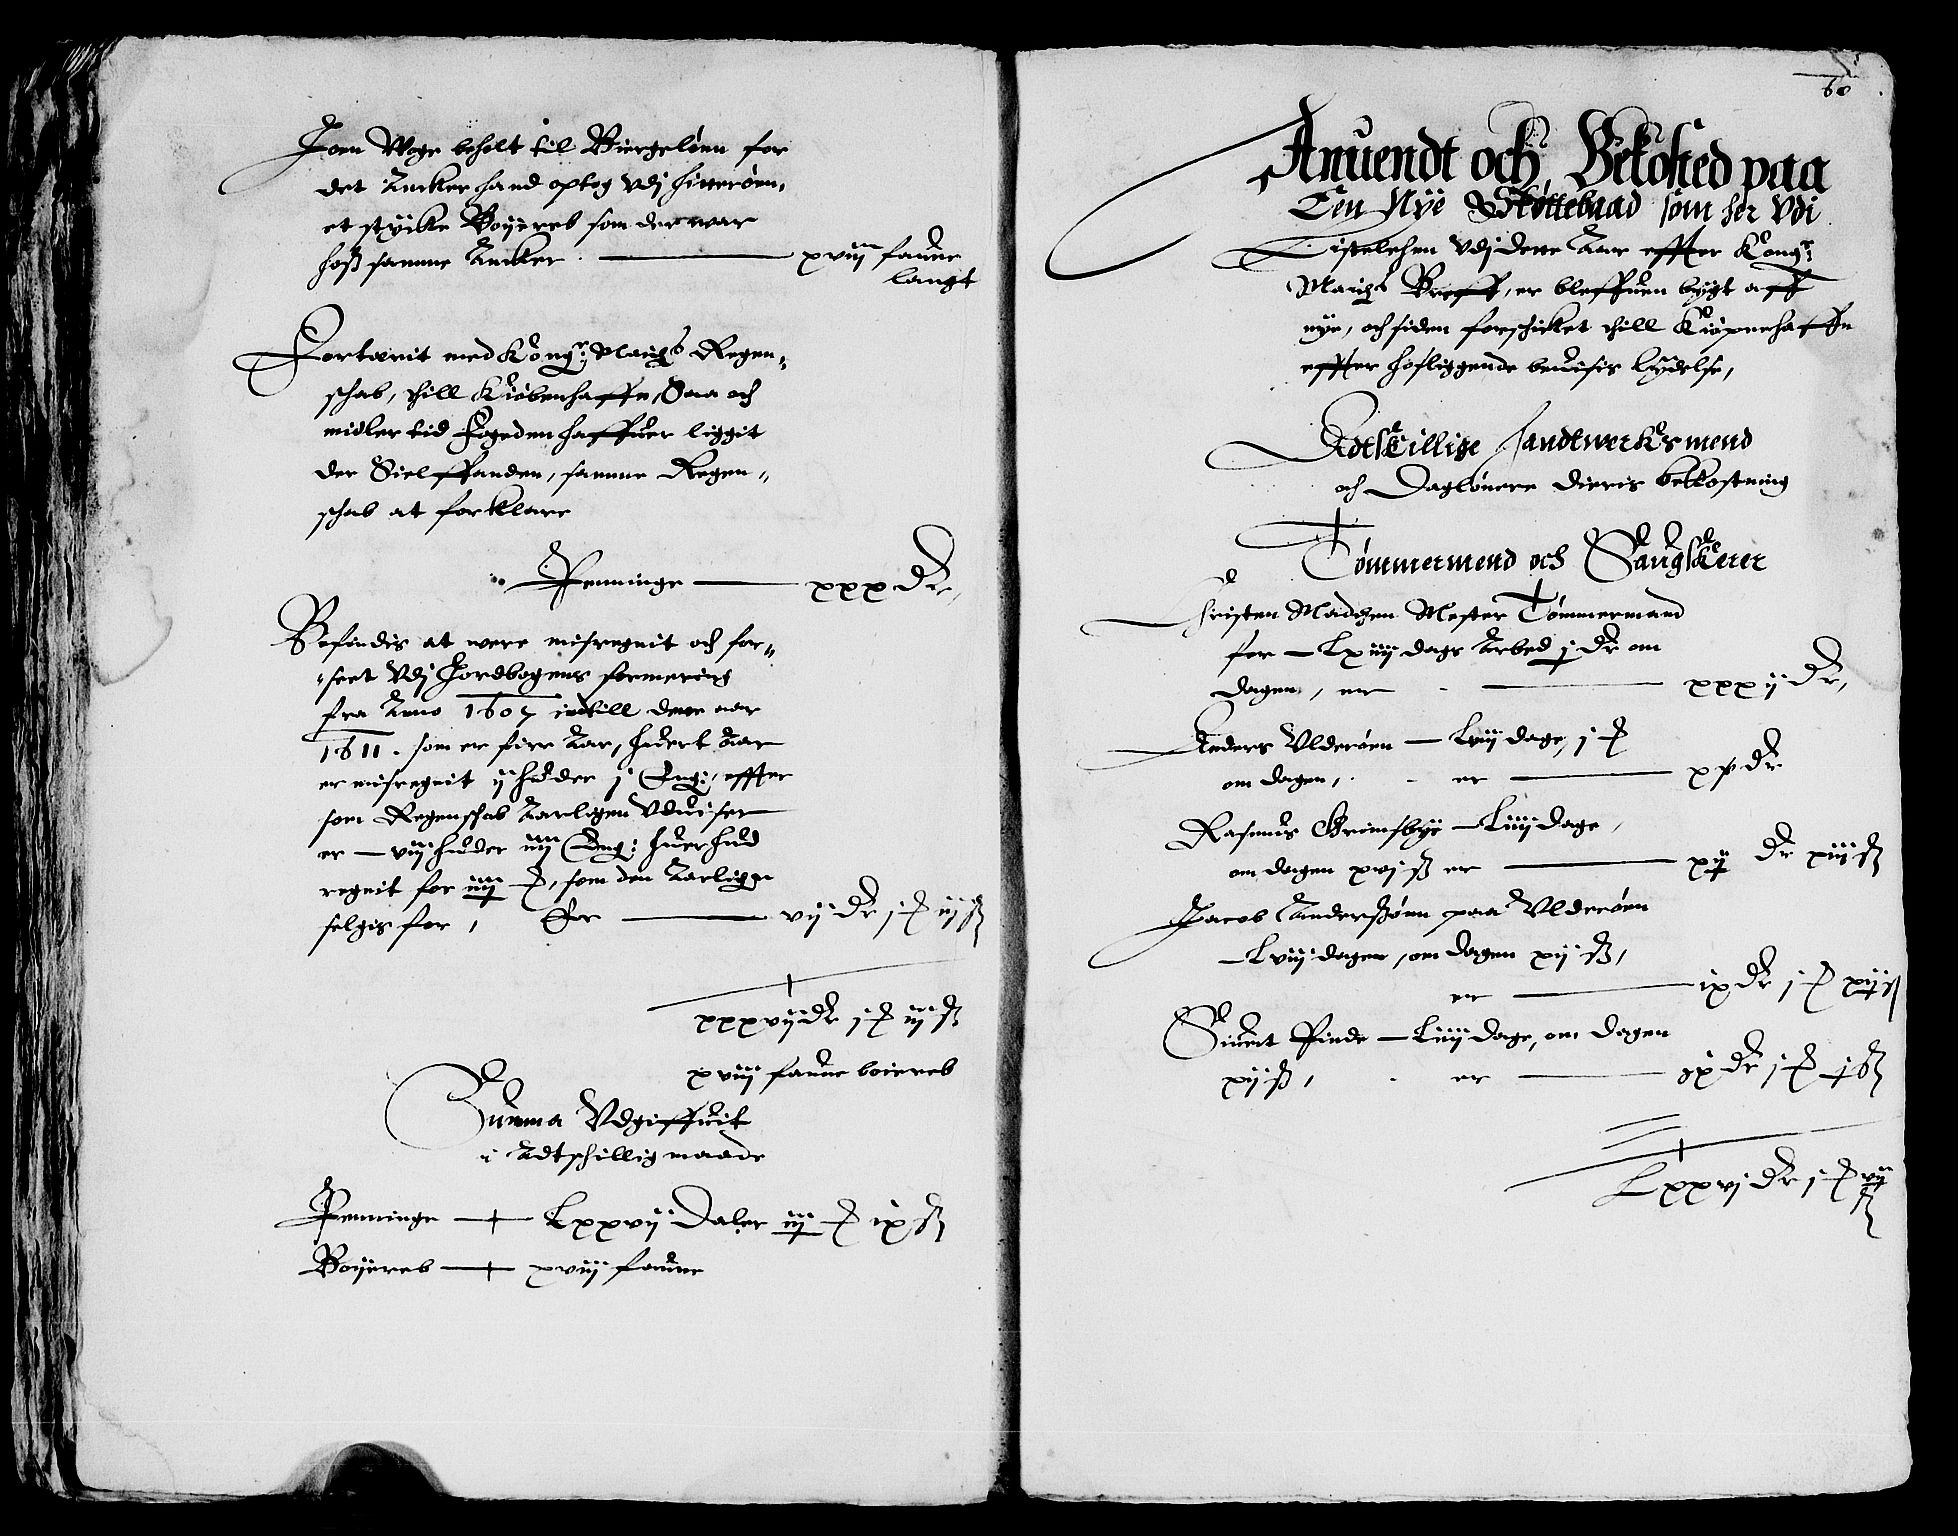 Joen Woge beholt til Biergeløen for
det Ancker hand optog vdj Hitterøen,
et stycke Boyereb som der war
hoss samme Ancker. — xviij faune
langt
Fortærit med Kong: Maytz Regen„
schab, thill Kiøbenhaffn, Saa och
midler tid Fogeden haffuer liggit
der Sielffanden, samme Regen„
schab at forklare
Penninge — xxx Dr,
Befindis at were misregnit och for„
„seet vdj Jordbogens formering
fra Anno 1607 indtill dette aar
1611. som er fire Aar, huert Aar
er misregnit ij huder j Eng: effter
som Regenschab Aarligen vduiser
er — viij huder iiij Eng: huer hud
regnit for iiij ₰, som den Aarligen
selgis for, Er — vij Dr j ₰ iij ß
xxxvij Dr j ₰ iij ß
xviij faune boiereb
Summa Vdgiffuit
i Adtschillig maade
Penninge — Lxxvij Daler iij ₰ ix ß
Boyereb — xviij faune
60
Anuendt och Bekosted paa
Een Nye Skøttebaad som her vdi
Tistelehen vdj dette Aar effter Kong:
Maytz Breff, er bleffuen bygt aff
nye, och siden forschicket thill Kiøpnehaffn
effter hosliggende beuisis lydelse,
Adtskillige Handtwerksmend
och Daglønere dieris bekostning
Tømmermend och Saugskerer
Christen Madtzen Mester Tømmermand
for — Lxiiij dags Arbed j Dr om
dagen, er — xxxij Dr,
Anders Vlderøen — Lviij dage, j ₰
om dagen, er — xv Dr
Rasmus Grimsbye — Liiij dage,
om dagen xvj ß er — xij Dr xiij ß
Jacob Anderssønn paa Vlderøen
— Lviij dager, om dagen xij ß,
er — ix Dr j ₰ xij ß
Siuert Pinde — Liiij dage, om dagen
xij ß, er — ix Dr j ₰ j ß
Lxxvj Dr j ₰ vij
ß